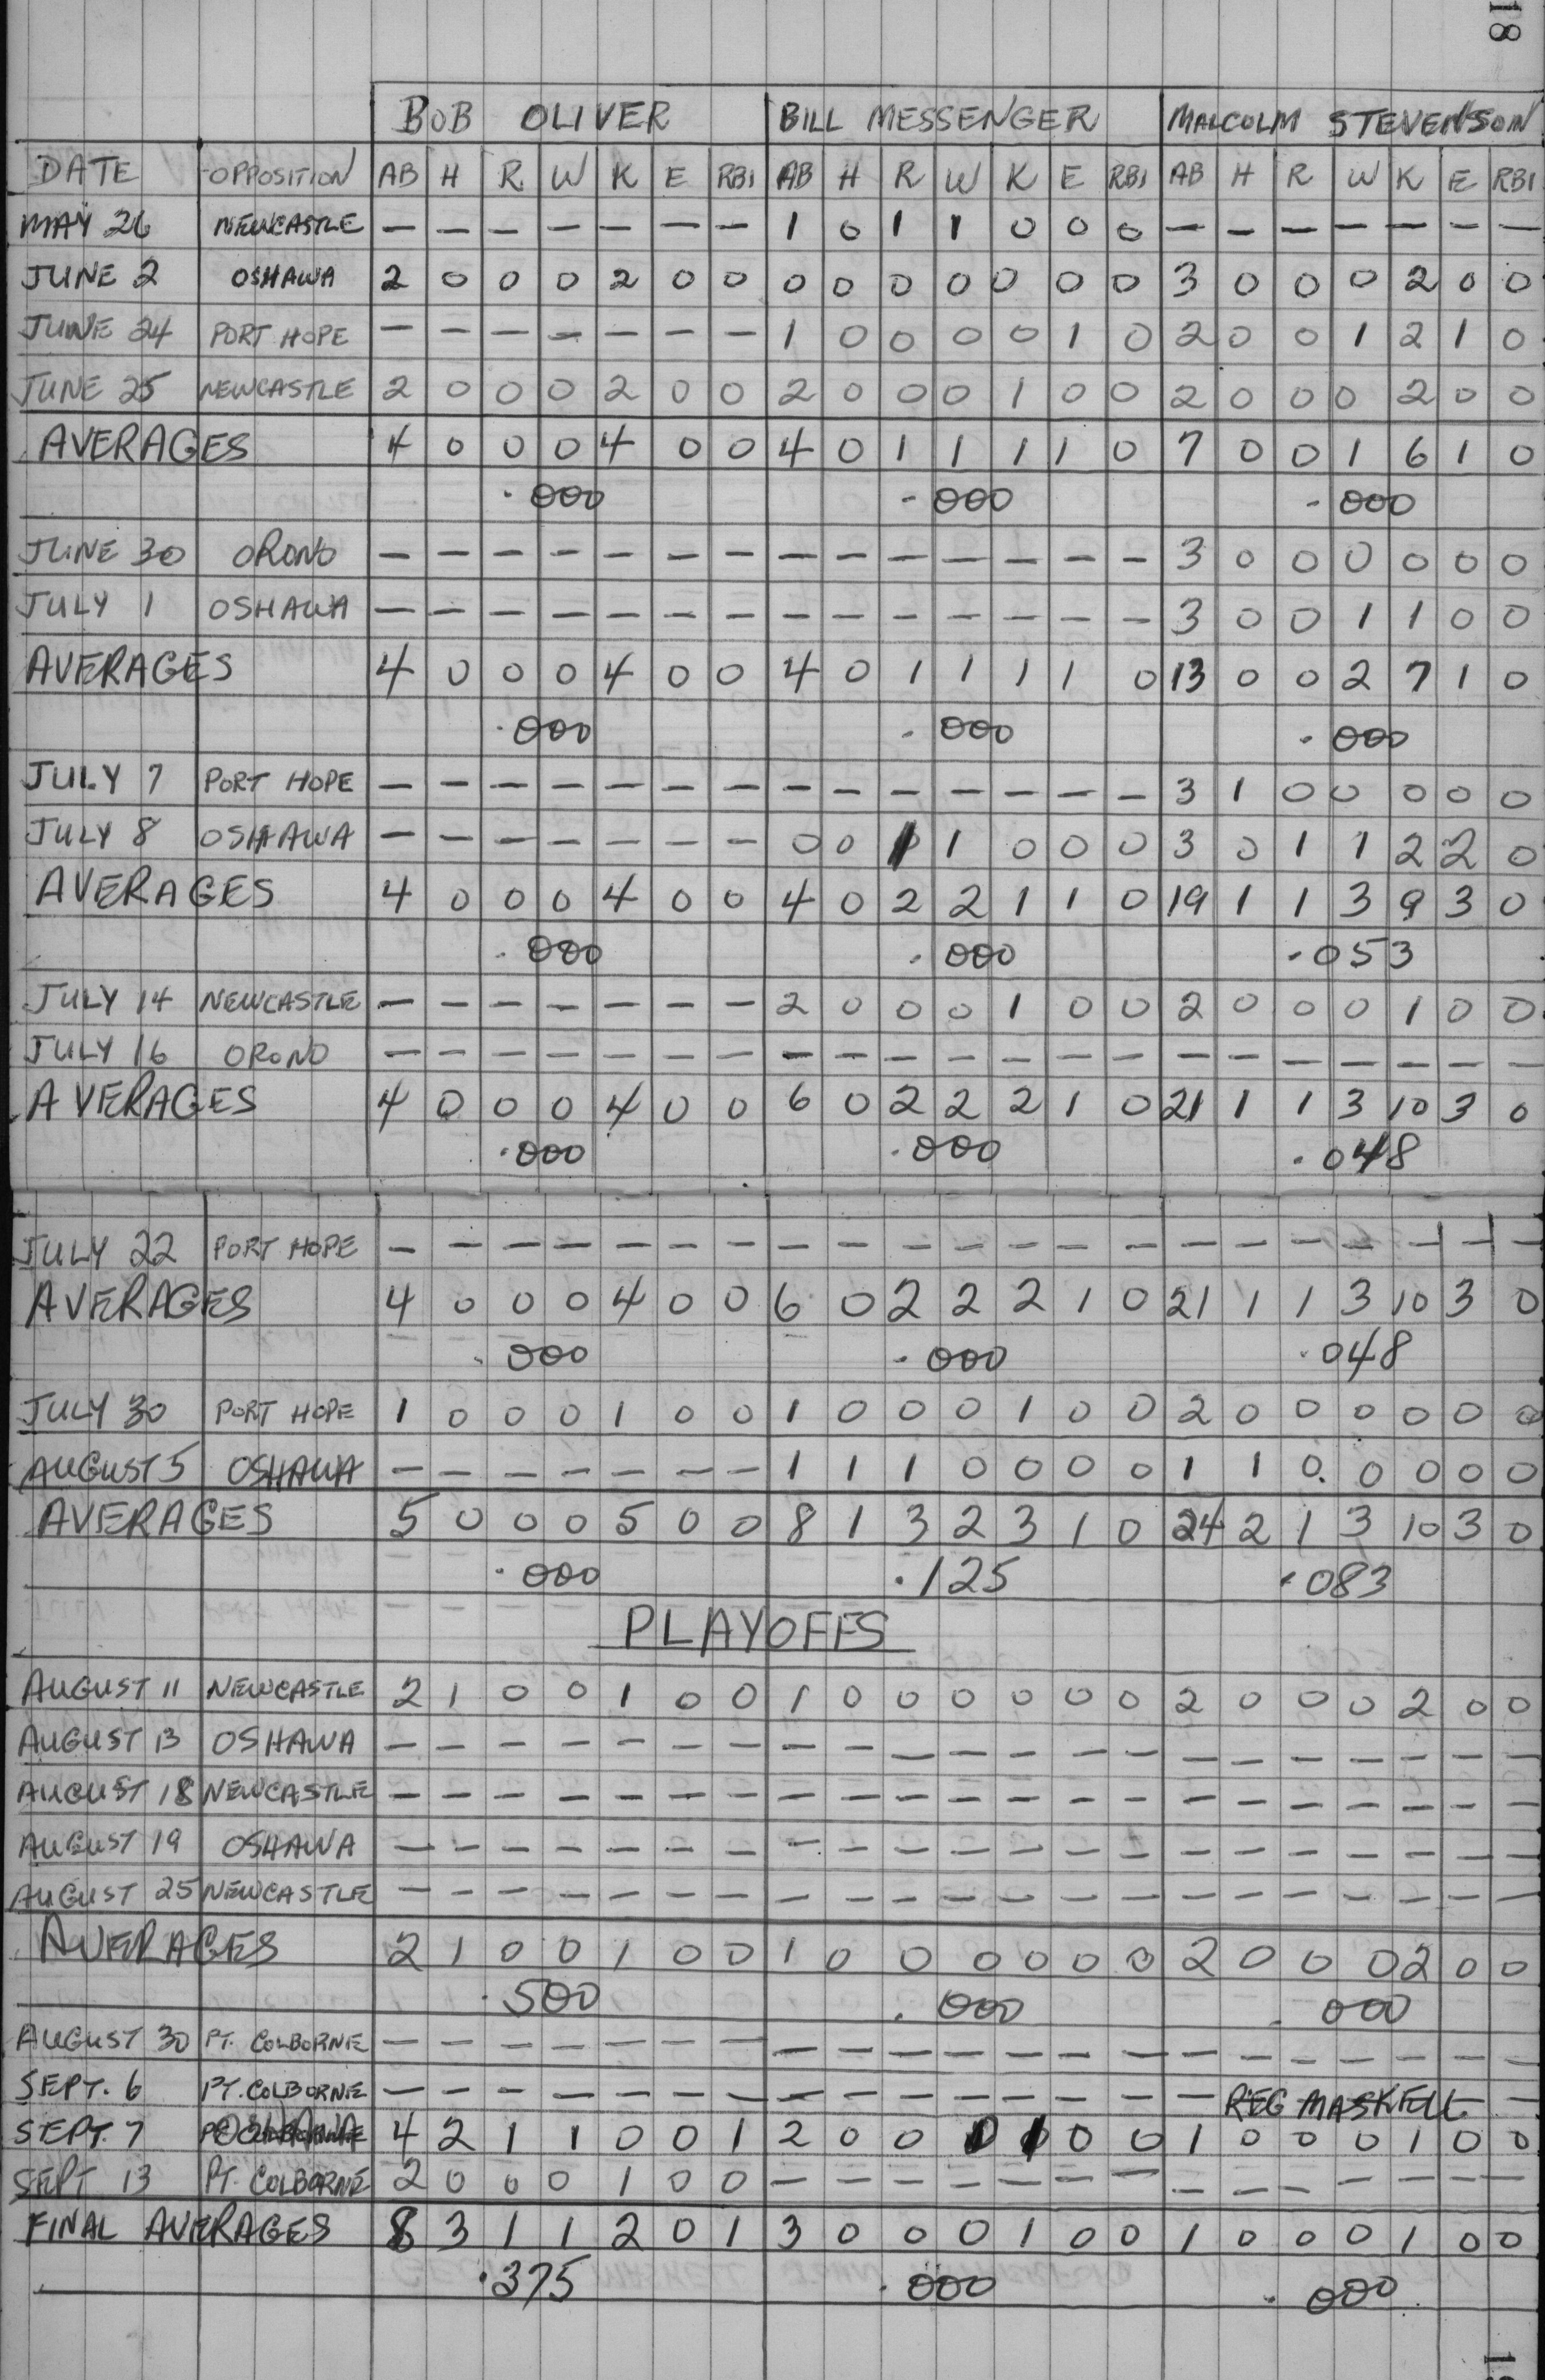 18
BOB OLIVER BILL MESSENGER MALCOLM STEVENSON
DATE OPPOSITION AB H R W K E RBI AB H R W K E RBI AB H R W K E RBI
MAY 26 NEWCASTLE — — — — — — — 1 0 1 1 0 0 0 — — — — — — —
JUNE 2 OSHAWA 2 0 0 0 2 0 0 0 0 0 0 0 0 0 3 0 0 0 2 0 0
JUNE 24 PORT HOPE — — — — — — — 1 0 0 0 0 1 0 2 0 0 1 2 1 0
JUNE 25 NEWCASTLE 2 0 0 0 2 0 0 2 0 0 0 1 0 0 2 0 0 0 2 0 0
AVERAGES 4 0 0 0 4 0 0 4 0 1 1 1 1 0 7 0 0 1 6 1 0
.000 .000 .000
JUNE 30 ORONO — — — — — — — — — — — — — — 3 0 0 0 0 0 0
JULY 1 OSHAWA — — — — — — — — — — — — — — 3 0 0 1 1 0 0
AVERAGES 4 0 0 0 4 0 0 4 0 1 1 1 1 0 13 0 0 2 7 1 0
.000 .000 .000
JULY 7 PORT HOPE — — — — — — — — — — — — — — 3 1 0 0 0 0 0
JULY 8 OSHAWA — — — — — — — 0 0 1 1 0 0 0 3 0 1 1 2 2 0
AVERAGES 4 0 0 0 4 0 0 4 0 2 2 1 1 0 19 1 1 3 9 3 0
.000 .000 .053
JULY 14 NEWCASTLE — — — — — — — 2 0 0 0 1 0 0 2 0 0 0 1 0 0
JULY 16 ORONO — — — — — — — — — — — — — — — — — — — — —
AVERAGES 4 0 0 0 4 0 0 6 0 2 2 2 1 0 21 1 1 3 10 3 0
.000 .000 .048
JULY 22 PORT HOPE — — — — — — — — — — — — — — — — — — — — —
AVERAGES 4 0 0 0 4 0 0 6 0 2 2 2 1 0 21 1 1 3 10 3 0
.000 .000 .048
JULY 30 PORT HOPE 1 0 0 0 1 0 0 1 0 0 0 1 0 0 2 0 0 0 0 0 0
AUGUST 5 OSHAWA — — — — — — — 1 1 1 0 0 0 0 1 1 0 0 0 0 0
AVERAGES 5 0 0 0 5 0 0 8 1 3 2 3 1 0 24 2 1 3 10 3 0
.000 .125 .083
PLAYOFFS
AUGUST 11 NEWCASTLE 2 1 0 0 1 0 0 1 0 0 0 0 0 0 2 0 0 0 2 0 0
AUGUST 13 OSHAWA — — — — — — — — — — — — — — — — — — — — —
AUGUST 18 NEWCASTLE — — — — — — — — — — — — — — — — — — — — —
AUGUST 19 OSHAWA — — — — — — — — — — — — — — — — — — — — —
AUGUST 25 NEWCASTLE — — — — — — — — — — — — — — — — — — — — —
AVERAGES 2 1 0 0 1 0 0 1 0 0 0 0 0 0 2 0 0 0 2 0 0
.500 .000 .000
AUGUST 30 PT. COLBORNE — — — — — — — — — — — — — — — — — — — — —
SEPT. 6 PT. COLBORNE — — — — — — — — — — — — — — — REG MASKELL —
SEPT. 7 OSHAWA 4 2 1 1 0 0 1 2 0 0 0 1 0 0 1 0 0 0 1 0 0
SEPT 13 PT. COLBORNE 2 0 0 0 1 0 0 — — — — — — — — — — — — — —
FINAL AVERAGES 8 3 1 1 2 0 1 3 0 0 0 1 0 0 1 0 0 0 1 0 0
.375 .000 .000